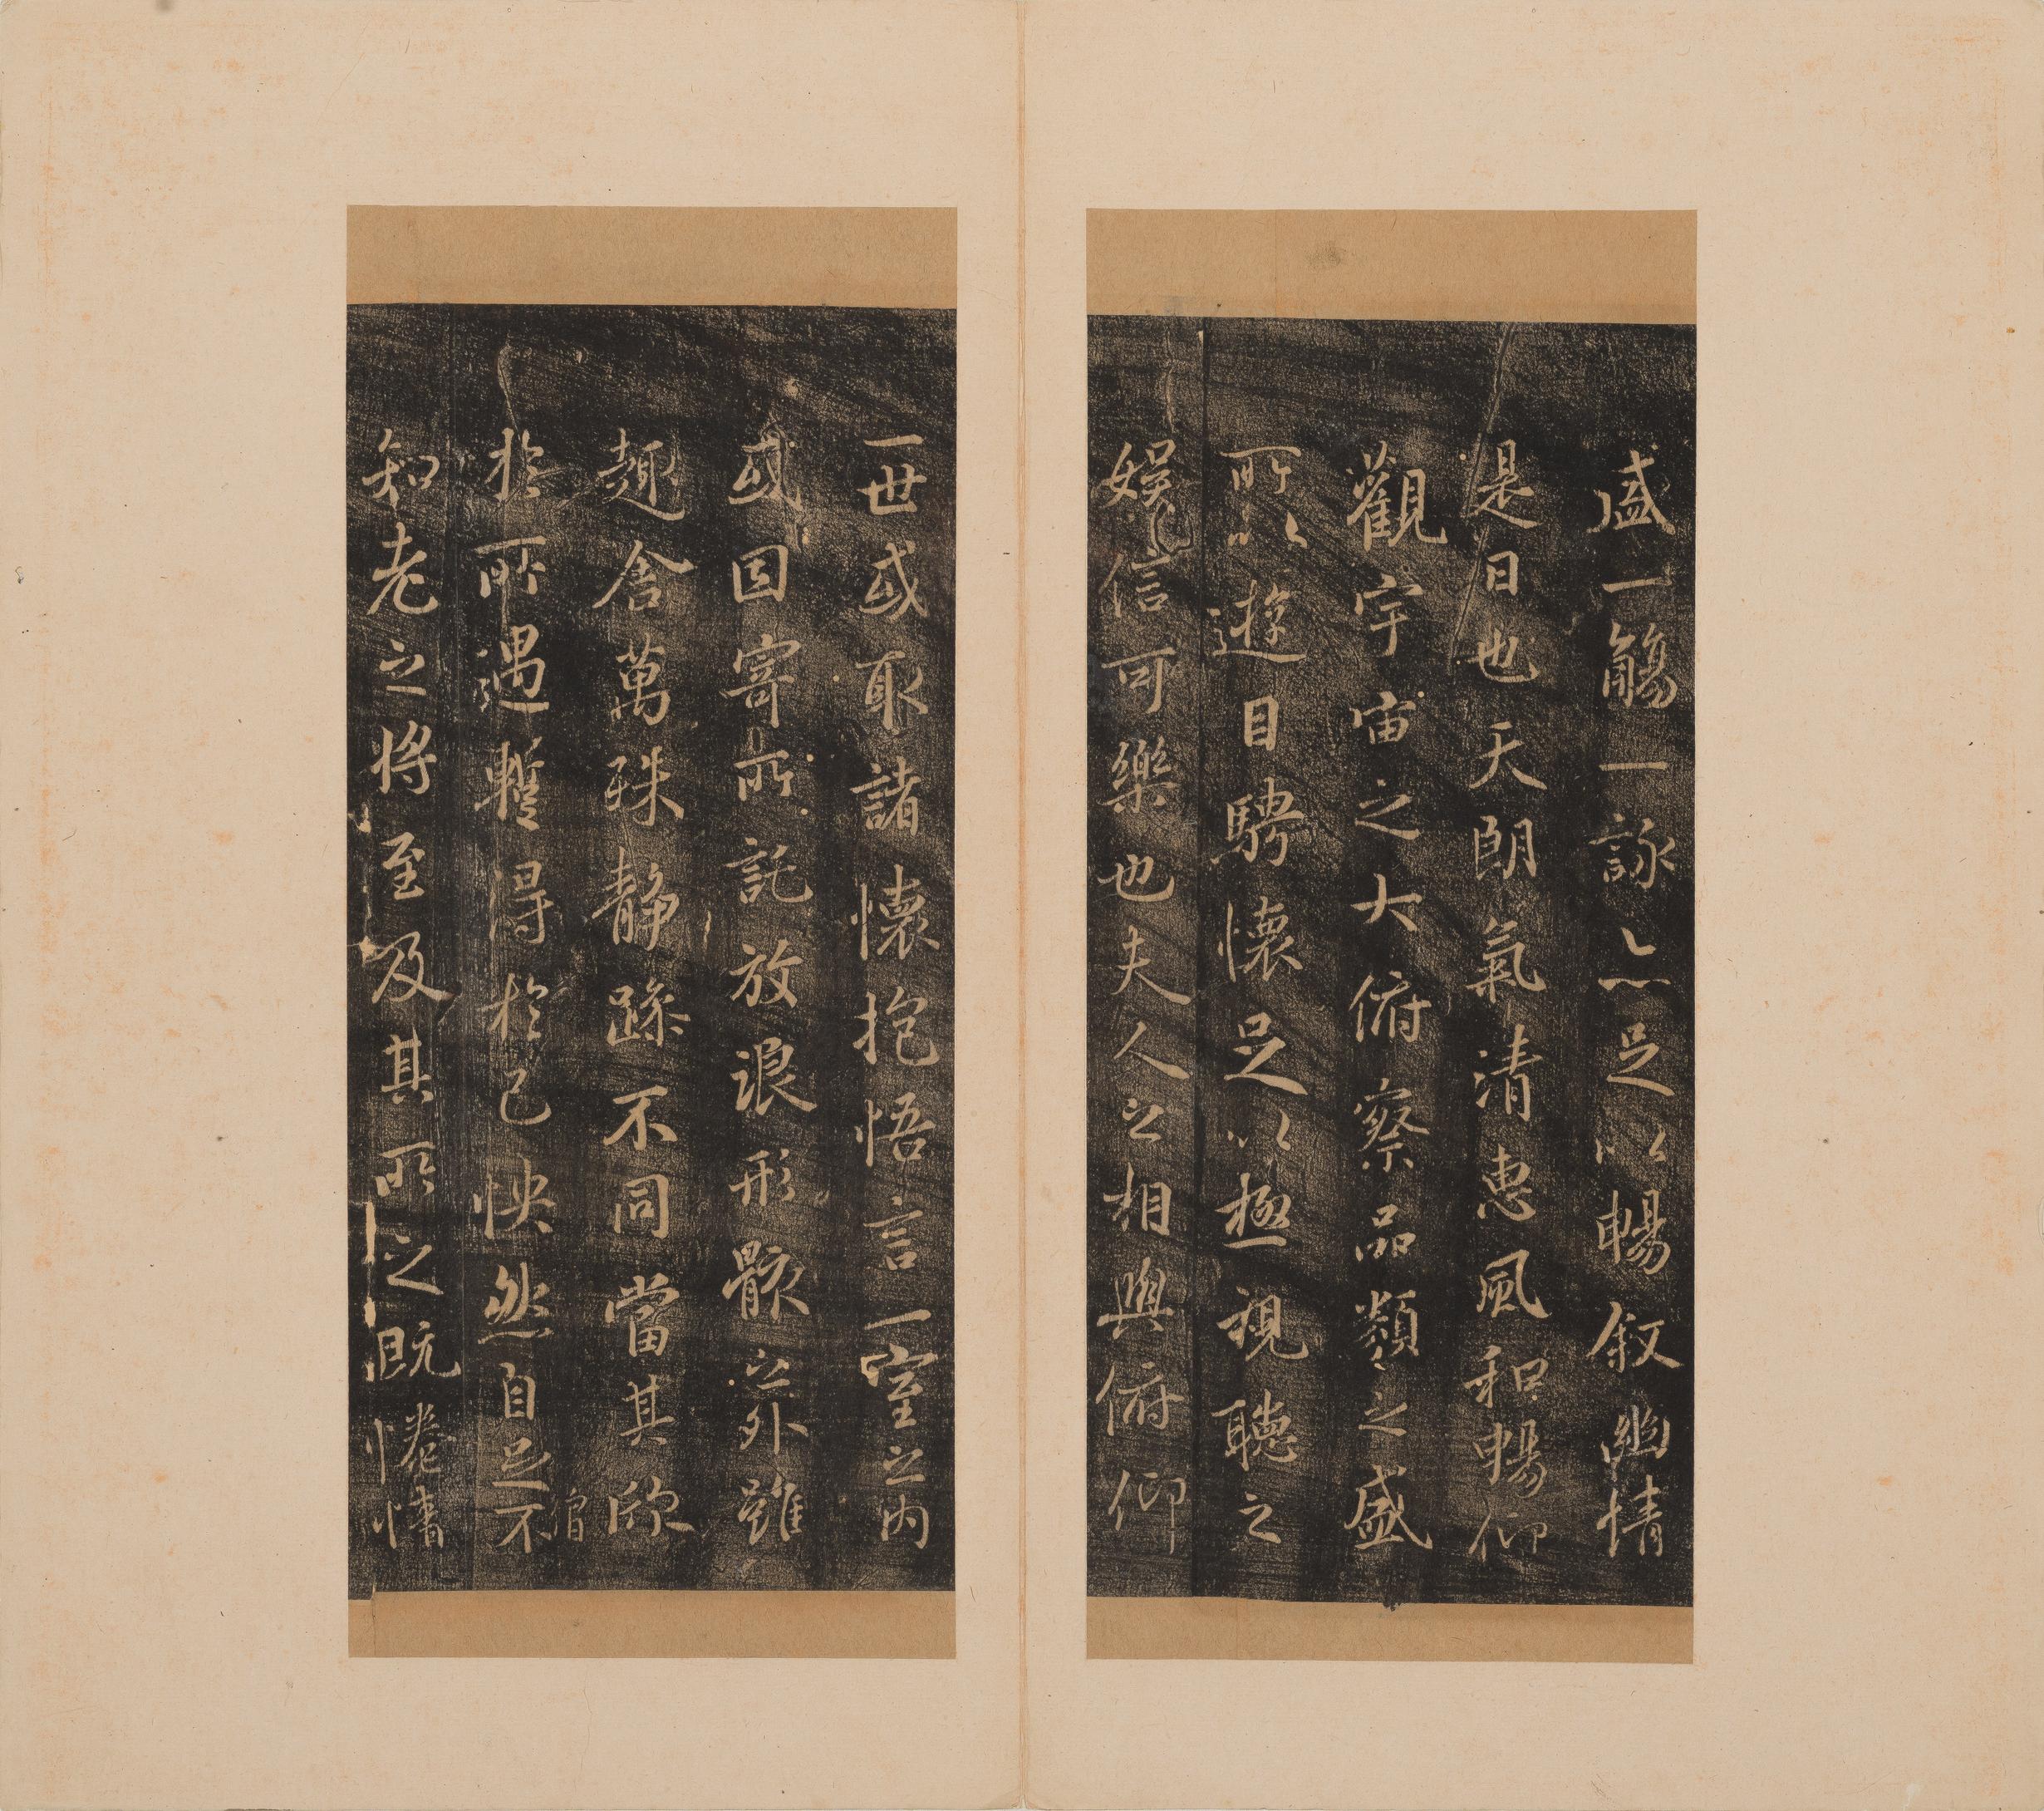 盛一觴一詠亦足以暢敘幽情
是日也天朗氣清惠風和暢仰
觀宇宙之大俯察品類之盛
所以遊目騁懷足以極視聽之
娛信可樂也夫人之相與俯仰
一世或取諸懷抱悟言一室之內
或因寄所託放浪形骸之外雖
趣舍萬殊靜躁不同當其欣
於所遇暫得於己怏然自足不
僧
知老之將至及其所之既惓情